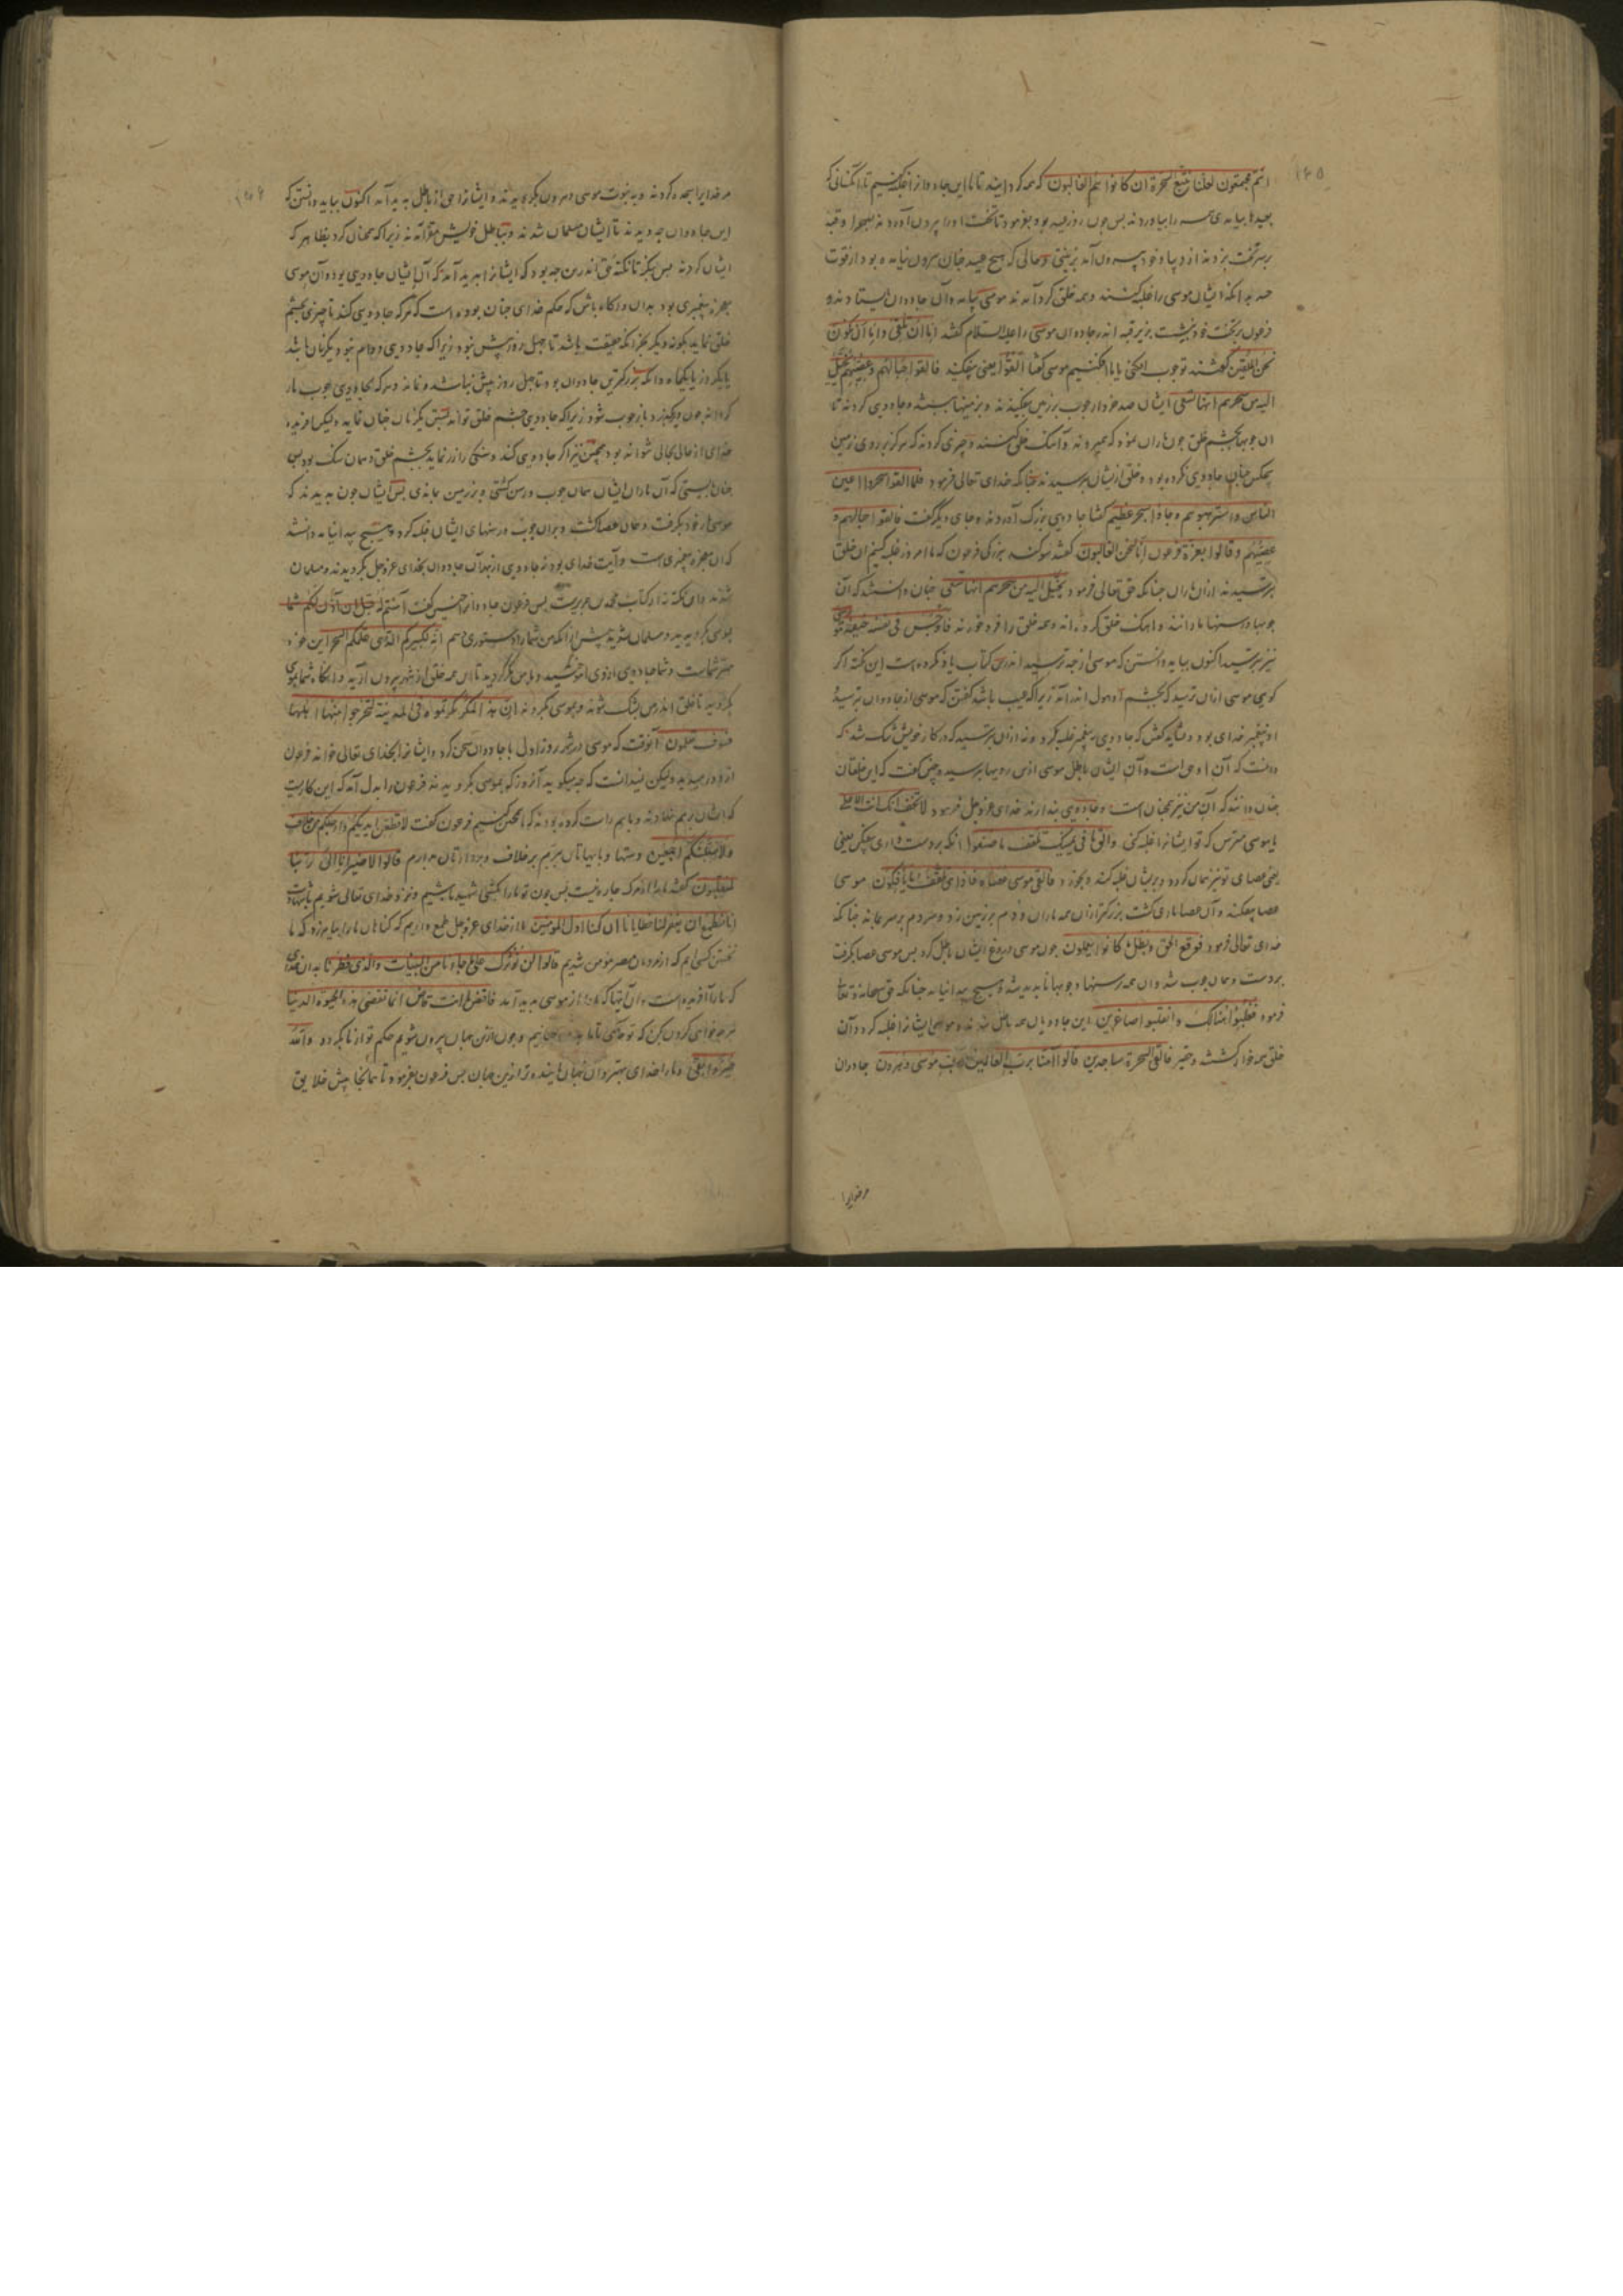 انتم مجتمعون لعلنا نتبع السحرة ان كانوا هم الغالبون که همه گرد آیید تا ما این جاودانرا غلبه کنیم تا آنکسانی که
بعیدها بیامدی همه را بیاوردند بس جون روز عید بود بفرمود تا تخت او را بیرون آوردند بصحرا و قبه
بر سر تخت بزدند از دیبا و خود بیرون آمد بزینتی و حالی که هیچ عید جنان بیرون نیامده بود از قوت
ایشان موسی را غلبه کنند و همه خلق گرد آمدند موسی بیامد و آن جاودان بیستادند و
فرعون بر تخت خود بنشست بزیر قبه اندر جاودان موسی را علیه السلام گفتند اما ان تلقی و اما ان نکون
نحن الملقین گفتند تو جوب افکنی یا ما افکنیم موسی گفتا القوا یعنی بیفکنید فالقوا حبالهم و عصیهم یخیل
الیه من سحرهم انها تسعی ایشان صد خروار جوب بر زمین بیفکندند و جاودی کردند تا
آن جوبها بجشم خلق جون ماران نمود که میروند و آهنگ خلق و جیزی کردند که هرگز بر روی زمین
هیچکس جنان جاودی نکرده بود و خلق ازیشان بترسیدند جنانکه خدای تعالی فرمود فلما القوا سحروا اعین
الناس و استرهبوهم و جاؤا بسحر عظیم گفتا جادوی بزرگ آوردند و جای دیگر گفت فالقوا حبالهم و
عصیهم و قالوا بعزة فرعون انا لنحن الغالبون گفتند سوگند ببزرگی فرعون که ما امروز غلبه کنیم آن خلق
بترسیدند از آن ماران جنانکه حق تعالی فرمود یخیل الیه من سحرهم انها تسعی جنان دانستند که آن
جوبها و رسنها مارانند و آهنگ خلق کرده اند و همه خلق را فرو خورند فاوجس فی نفسه خیفة موسی
نیز بترسید اکنون بباید دانستن که موسی از جه ترسید اندرین کتاب یاد نکرده است این نکته اگر
گویی موسی از آن ترسید که بجشم او هول اندر آمد زیرا که عیب باشد گفتن که موسی از جاودان بترسید
او پیغمبر خدای بود و نشاید گفتن که جادوی بر پیغمبر غلبه کرد و نه از آن بترسید که در کار خویش بشک شد که
دانست که آن او حق است و آن ایشان باطل موسی ازین رویها بترسید و جنین گفت که این خلقان
جنان دانند که آن من نیز همجنان است و جادوی پندارند خدای عز و جل فرمود لا تخف انک انت الاعلی
یا موسی مترس که تو ایشانرا غلبه کنی و الق ما فی یمینک تلقف ما صنعوا آنکه بر دست داری بیفکن یعنی
عصای تو نیز همان گردد و بریشان غلبه کند و بخورد فالقی موسی عصاه فاذا هی تلقف ما یافکون موسی
عصا بیفکند و آن عصا ماری گشت بزرگتر از آن همه ماران و دم بر زمین زد و مردم بر سر بماند جنانکه
خدای تعالی فرمود فوقع الحق و بطل ما کانوا یعملون جون موسی دروغ ایشان باطل کرد بس موسی عصا بگرفت
بر دست و همان جوب شد و آن همه رسنها و جوبها ناپدید شد و هیچ پیدا نیامد جنانکه حق سبحانه و تعالی
فرمود فغلبوا هنالک و انقلبوا صاغرین این جادویان همه باطل شدند و موسی ایشانرا غلبه کرد و آن
خلق همه خوار گشتند و حقیر فالقی السحرة ساجدین قالوا آمنا برب العالمین رب موسی و هرون جاودان
مر خدایرا
مر خدایرا سجده کردند و به نبوت موسی و هرون بگرویدند و ایشانرا حق از باطل پدید آمد اکنون بباید دانستن که
این جاودان جه دیدند تا ایشان مسلمان شدند و بباطل خویش مقر آمدند زیرا که همجنان کرد بظاهر که
ایشان کردند بس بنگر تا نکته حق اندرین جه بود که ایشانرا پدید آمد که آن ایشان جادوی بود و آن موسی
معجزه پیغمبری بود بدان و آگاه باش که حکم خدای جنان بوده است که هر که جادوی کند تا جیزی بجشم
خلق نماید بگونه دیگر بجز آنکه حقیقت باشد تا جهل روز بیش نبود زیرا که جادوی دوام نبود یکزمان باشد
یا یکروز یا یکماه و آنکه بزرگترین جاودان بود تا جهل روز بیش نباشد و نماند و هر که بجادوی جوب مار
کرداند جون بگیرد باز جوب شود زیرا که جادوی جشم خلق تواند بستن یکزمان جنان نماید ولیکن آفریده
خدای از حالی بحالی نتواند بود همجنین نیز اگر جادوی کند و سنگی را زر نماید بجشم خلق و همان سنگ بود بس
جنان بایستی که آن ماران ایشان همان جوب و رسن گشتی و بر زمین بماندی بس ایشان جون بدیدند که
موسی مار خود بگرفت و همان عصا گشت و بر آن جوب و رسنهای ایشان غلبه کرد و هیچ پیدا نیامد دانستند
که آن معجزه پیغمبری است و آیت خدای بود نه جادوی از بهر آن جاودان بخدای عز و جل بگرویدند و مسلمان
شدند و این نکته نه از کتاب محمد بن جریرست بس فرعون جاودانرا جنین گفت آمنتم له قبل ان آذن لکم شما
بموسی بگرویدید و مسلمان شدید بیش از آنکه من شما را دستوری دهم انه لکبیرکم الذی علمکم السحر این خود
مهتر شماست و شما جادوی از وی آموختید و با من مکر کردید تا این همه خلق از شهر بیرون آرید و آنگاه شما بموسی
بگرویدید تا خلق اندر من بشک شوند و بموسی بگروند ان هذا لمکر مکرتموه فی المدینة لتخرجوا منها اهلها
فسوف تعلمون آنوقت که موسی در شهر روز اول با جاودان سخن کرد و ایشانرا بخدای تعالی خواند فرعون
از دور میدید ولیکن نمیدانست که جه میگوید آنروز که بموسی بگرویدند فرعون را بدل آمد که این کاریست
که ایشان بر هم نهادند و با هم راست کرده بودند که ما همجنین کنیم فرعون گفت لاقطعن ایدیکم و ارجلکم من خلاف
و لاصلبنکم اجمعین دستها و پایهاتان ببرم بر خلاف و بر دارتان بر دارم قالوا لا ضیر انا الی ربنا
لمنقلبون گفتند ما را از مرک جاره نیست بس جون تو ما را بکشی شهید باشیم و نزد خدای تعالی شویم بشهادت
انا نطمع ان یغفر لنا خطایانا ان کنا اول المومنین ما از خدای عز و جل طمع داریم که گناهان ما را بیامرزد که ما
نخستین کسی ایم که از مردمان مصر مومن شدیم قالوا لن نؤثرک علی ما جاءنا من البینات و الذی فطرنا بدان خدای
که ما را آفریده است و آن آیتها که ما را از موسی پدید آمد فاقض ما انت قاض انما تقضی هذه الحیوة الدنیا
هر جه خواهی کردن بکن که تو حکمی تا ما بدین جهانیم و جون ازین جهان بیرون شویم حکم تو از ما بگردد والله
خیر و ابقی و ما را خدای بهتر و آن جهان پاینده تر ازین جهان بس فرعون بفرمود تا همانجا پیش خلایق